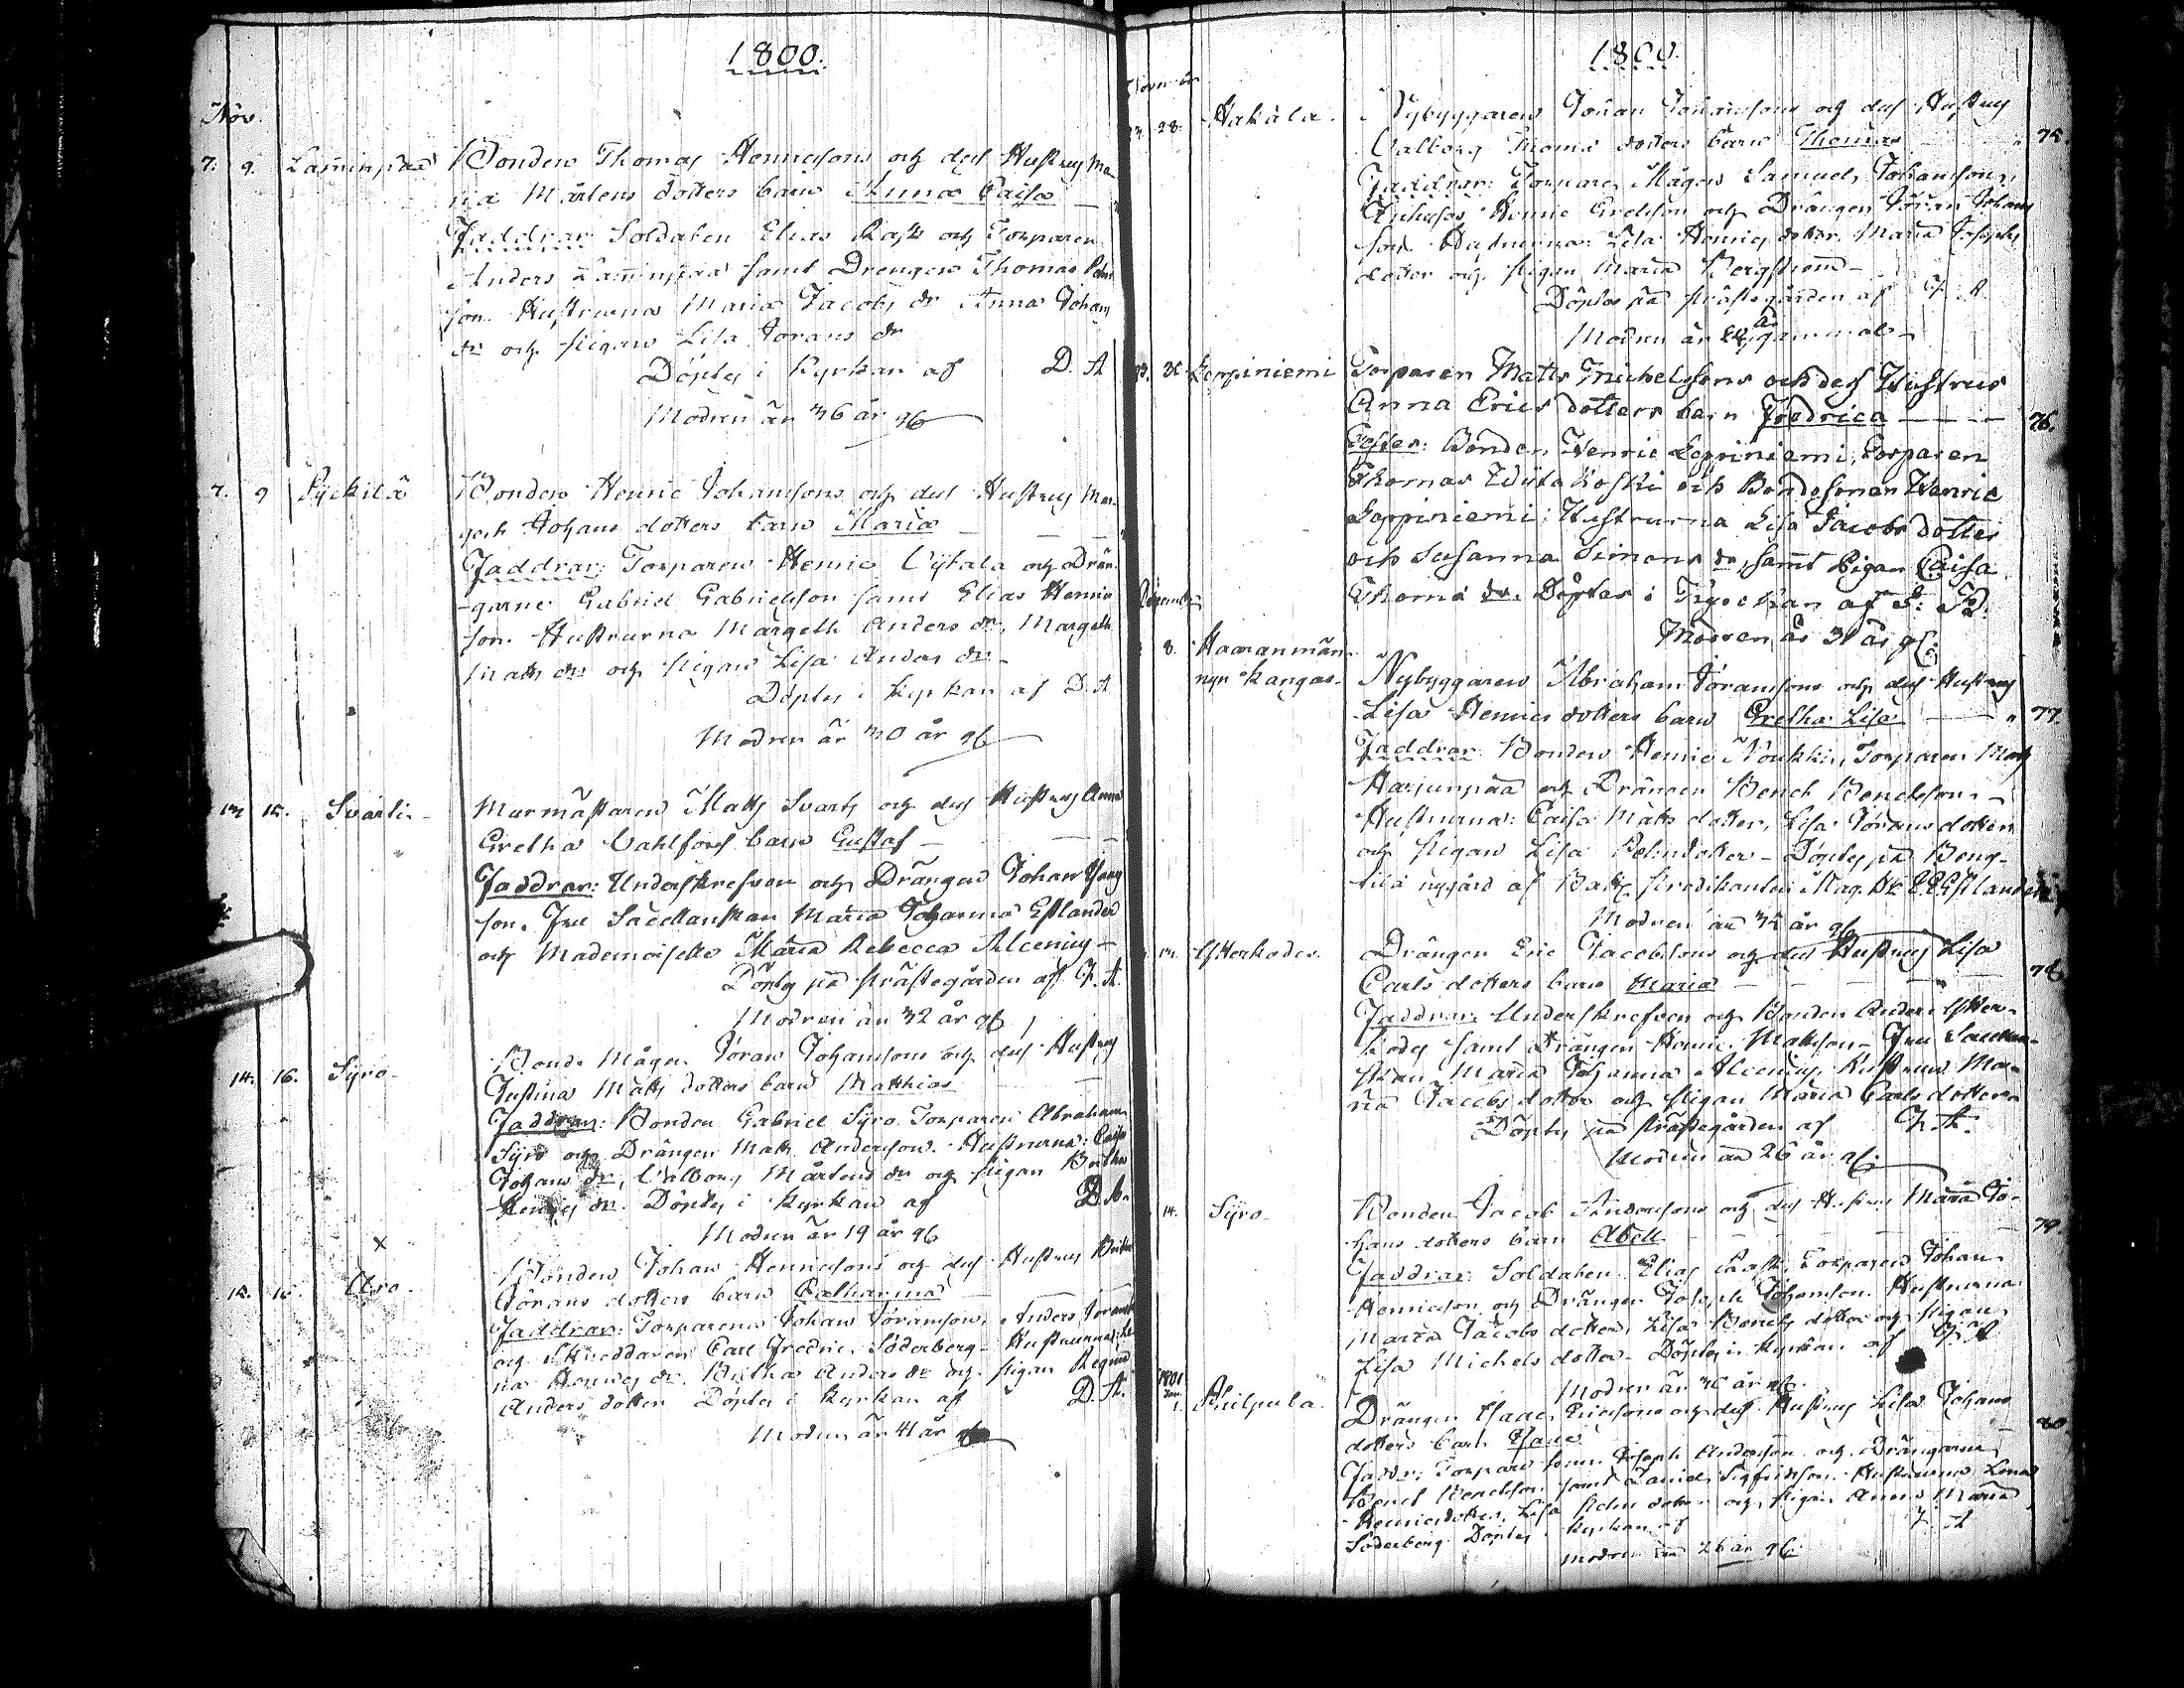 1800.
Nov.
7. 9. Lamminpää Bonden Thomas Henricsons och des Hustrus Ma
ria Mårtens dotters barn Anna Caisa
Faddrar Soldaten Elias Rask och Torparen
Anders Lamminpää samt Drengen Thomas
son. Hustrurna Maria Jacobs dr Anna Johans
dr och Pigan Lisa Jörans dr
Döptes i Kyrkan af D. A
Modren är 36 år gl
7. 9 Pyekilä Bonden Henric Johansons och des Hustrus Mar-
geth Johans dotters barn Maria
Faddrar: Torparen Henric Cytala och Drän-
garne Gabriel Gabrielsson samt Elias Henric
son. Hustrurna Margeth Anders dr, Margeth
Mats dr och Pigan Lisa Anders dr
Döptes i Kyrkan af D. A
Modren är 30 år gl
13 15. Svarti- Murmästaren Matts Svarts och des Hustrus Anna
Gretha Vahlfors barn Gustaf
Faddrar: Underskrefven och Drängen Johan
son. Fru Sacellanskan Maria Johanna Estlander
och Mademoiselle Maria Rebecca Alcenius
Döptes på Prästegården af J. A.
Modren är 32 år gl
14. 16. Syro- Bonde Mågen Jöran Johansons och des Hustrus
Justina Matts dotters barn Matthias
Faddrar: Bonden Gabriel Syro Torparen Abraham
Syro och Drängen Matts Anderson. Hustrurna: Caisa
Johans dr, Valborg Mårtens dr och Pigan
dr. Döptes i Kyrkan af D. A.
Modren är 19 år gl
x
15. Aro. Bonden Johan Henricsons och des Hustrus Brita
Jörans dotters barn Catharina
Faddrar: Torparena Johan Jöranson, Anders
och Skreddaren Carl Fredric Söderberg. Hustrurna:
na Henrics dr. Britha Anders dr och Pigan Regina
Anders dotter Döptes i Kyrkan af D. A.
Modren är 41 år
1800.
28. Hakala. Nybyggaren Johan Johansons och des Hustrus
Valborg Thomæ dotters barn Thomas 75.
Faddrar: Torpare Mågen Samuel Johanson,
Henric Ericson och Drängen Jöran Johans
son. Hustrurna: Lisa Henrics dotter, Maria Josephs
dotter och Pigan Maria Bergström
Döptes på Prästegården af J. A
Modren är år gammal
Leppiniemi Torparen Matts Michelssons och des Hustrus
Anna Erics dotters barn Fredrica 76.
Testes: Bonden Henric Leppiniemi, Torparen
Thomas Wijta Koski och Bondesonen Henric
Leppiniemi; Hustrurna Lisa Jacobs dotter
och Susanna Simons dr, samt Pigan Caisa
Thomæ dr. Döptes i Kyrckan af
Modren är 31 år gl.
December
8. Haaranmän-
nyn kangas. Nybyggaren Abraham Jöransons och des Hustrus
Lisa Henrics dotters barn Gretha Lisa 77.
Faddrar: Bonden Henric Noukki, Torparen Mats
Harjunpää och Drängen Bench Benchson.
Hustrurna: Caisa Mats dotter, Lisa Jörans dotter
och Pigan Lisa dotter. Döptes på Beng-
tilä nygård af Batt. Predikanten Mag. Estlander
Modren är 35 år gl
Ytterkoder. Drängen Eric Jacobsons och des Hustrus Lisa
Carls dotters barn Maria 78
Faddrar: Underskrefven och Bonden Anders Ytter-
koders samt Drängen Henric Mattsson. Fru Sacellan-
skan Maria Johanna Alcenius, Hustrun Ma-
ria Jacobs dotter och Pigan Maria Carls dotter
Döptes på Prästegården af J. A.
Modren är 26 år gl.
14. Syro. Bonden Jacob Andersons och des Hustrus Maria Jo-
hans dotters barn Abell 79
Faddrar: Soldaten Elias Rask, Torparen Johan
Henricson och Drängen Joseph Johanson. Hustrurna
Maria Jacobs dotter, Lisa dotter och Pigan
Lisa Michels dotter. Döptes i Kyrkan af J. A
Modren är 30 år gl.
1801
Jan.
1. Philpula. Drängen Isaac Ericsons och des Hustrus Lisa Johans
dotters barn Isaac 80
Faddr: Torpare sonen Joseph Anderson och Drängarne
Bench Benchson samt Daniel Sigfridson. Hustrurna Lena
Henricsdotter, Lisa dotter och Pigan Anna Maria
Söderberg Döptes i Kyrkan af J. A
Modren är 26 år gl.